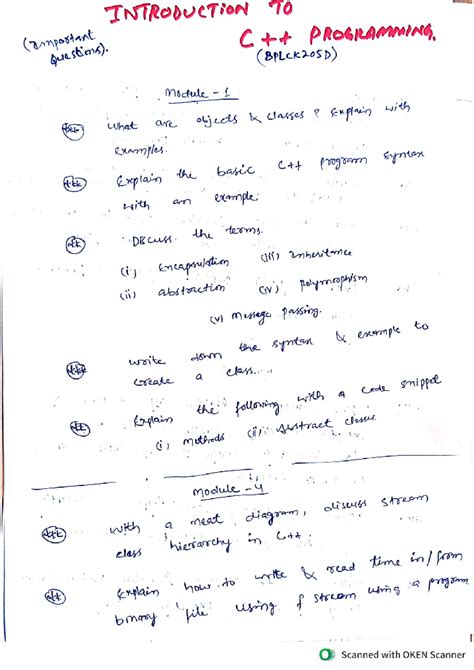 INTRODUCTION TO
C++ PROGRAMMING.
(Important
Questions).
(BPLCK205D)
Module - 1
What are objects & classes? Explain with
examples.
Explain the basic C++ program syntax
with an example.
Discuss the terms.
(i) Encapsulation (iii) Inheritence
(ii) abstraction (iv) polymorphism
(v) Message passing.
write down the syntax & example to
create a class....
Explain the following with a code snippet
(i) methods (ii) Abstract classes.
Module - 4
with a neat diagram, discuss stream
class hierarchy in C++.
Explain how to write & read time in/from
binary file using f stream using a program
Scanned with OKEN Scanner